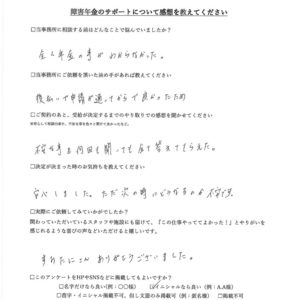 障害年金のサポートについて感想を教えてください
□当事務所に相談する前はどんなことで悩んでいましたか?
全く年金の事がわからなかった。
□当事務所にご依頼を頂いた決め手があれば教えてください
後払いで申請が通ってからで良かったため
□ご契約のあと、受給が決定するまでのやり取りでの感想を聞かせてください
何回も聞いても全て答えてもらえた。
□決定が決まった時のお気持ちを教えてください
安心しました。ただ次の時にどうなるのか
□実際にご依頼してみていかがでしたか?
関わっていただいているスタッフや施設にも届けて、「この仕事やっててよかった!」とやりがいを
感じれるような喜びの声などいただけると嬉しいです。
ありがとうございました。
□このアンケートをHPやSNSなどに掲載してもよいですか?
□名字だけなら良い(例:〇〇様) □イニシャルなら良い(例:A.A様)
□苗字・イニシャル掲載不可、但し文面のみ掲載可(例:匿名様) □掲載不可